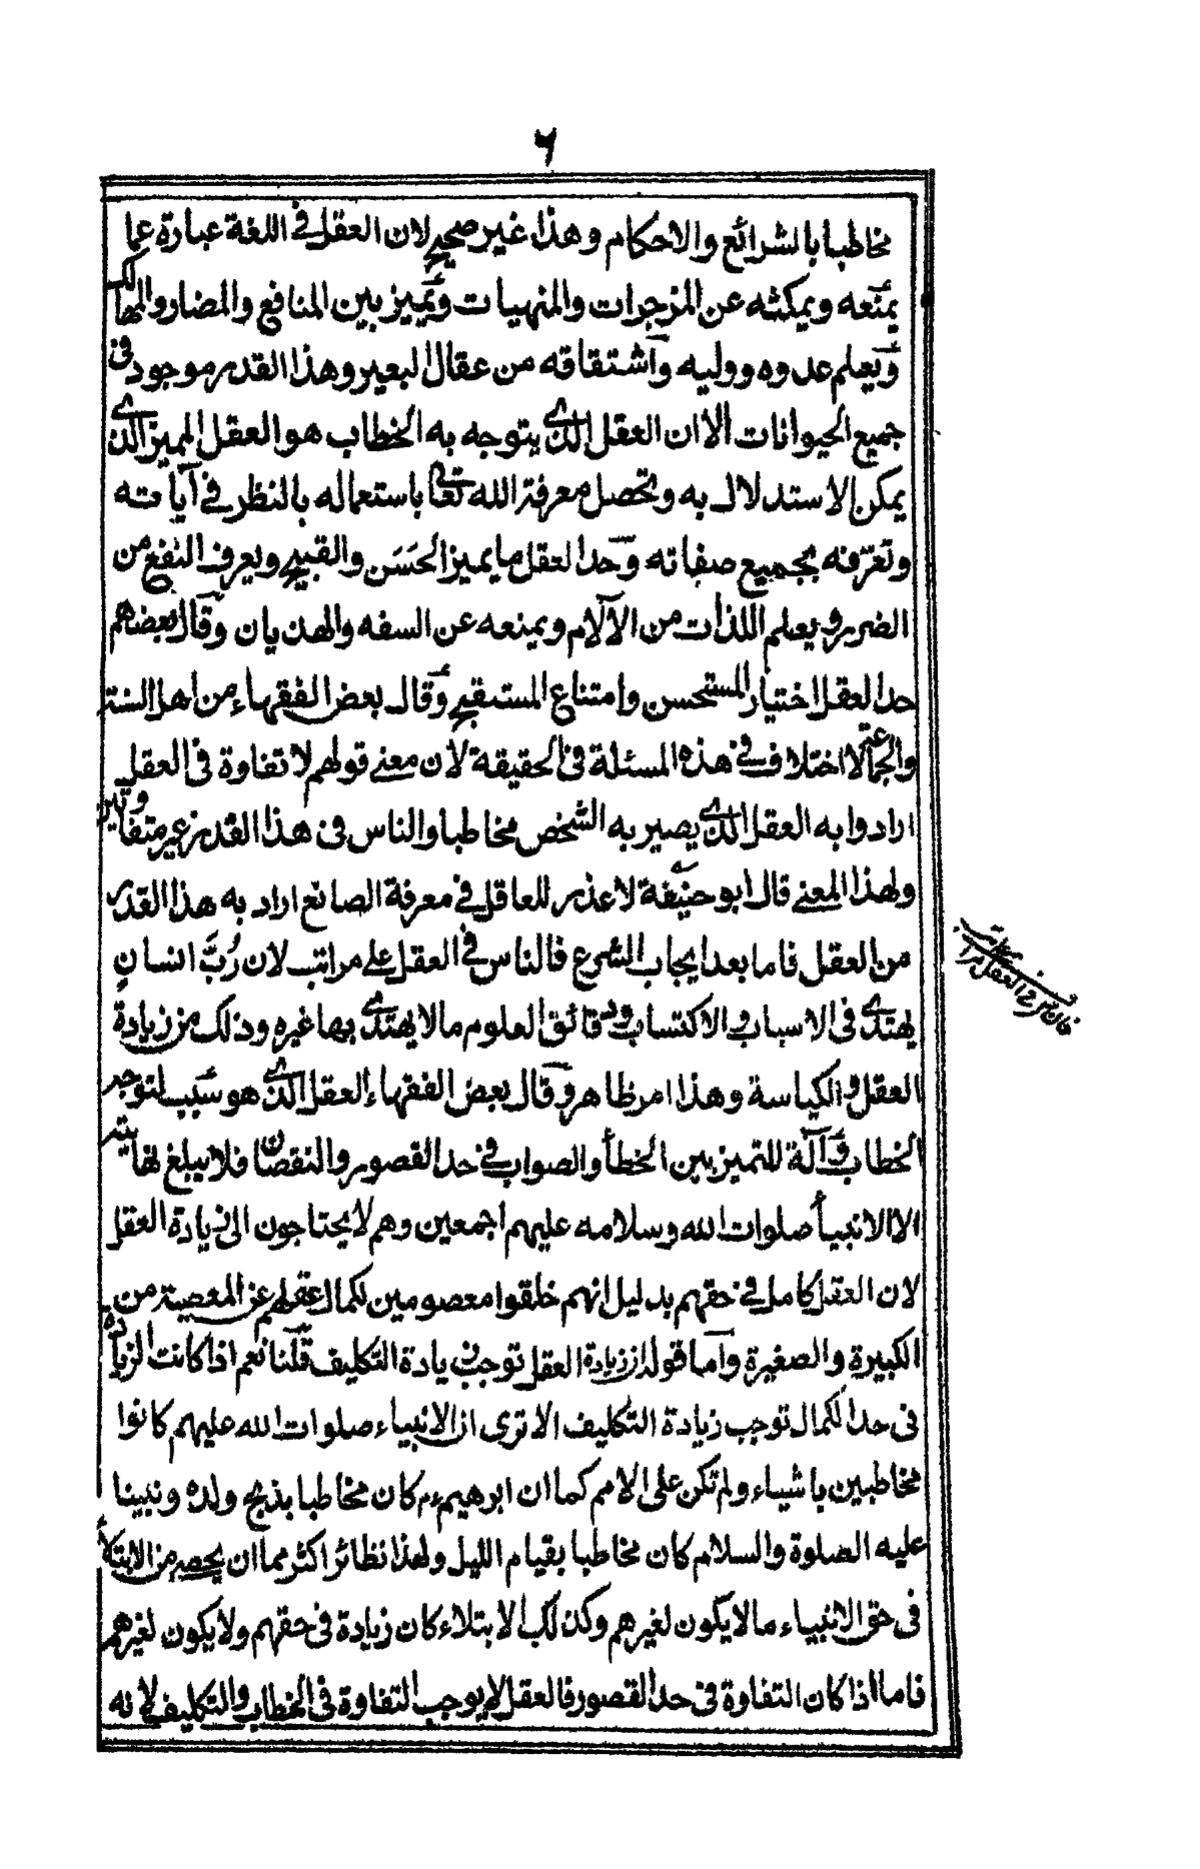 ٦
مخاطبا بالشرائع والاحكام وهذا غير صحيح لان العقل فى اللغة عبارة عما
يمنعه ويمكثه عن المزجرات والمنهيات ويميز بين المنافع والمضار والمهالك
ويعلم عدوه ووليه واشتقاقه من عقال البعير وهذا القدر موجود فى
جميع الحيوانات الا ان العقل الذى يتوجه به الخطاب هو العقل المميز الذى
يمكن الاستدلال به وتحصل معرفة الله تعالى باستعماله بالنظر فى آياته
وتعرفه بجميع صفاته وحد العقل ما يميز الحَسَن والقبيح ويعرف النفع من
الضرر ويعلم اللذات من الآلام ويمنعه عن السفه والهذيان وقال بعضهم
حد العقل اختيار المستحسن وامتناع المستقبح وقال بعض الفقهاء من اهل السنة
والجماعة لا اختلاف فى هذه المسئلة فى الحقيقة لان معنى قولهم لا تفاوة فى العقل
ارادوا به العقل الذى يصير به الشخص مخاطبا والناس فى هذا القدر غير متفاوتين
ولهذا المعنى قال ابو حنيفة لا عذر للعاقل فى معرفة الصانع اراد به هذا القدر
من العقل فاما بعد ايجاب الشرع فالناس فى العقل على مراتب لان رُبَّ انسانٍ
يهتدى فى الاسباب والاكتساب ودقائق العلوم مالا يهتدى بها غيره وذلك من زيادة
العقل والكياسة وهذا امر ظاهر وقال بعض الفقهاء العقل الذى هو سبب لتوجه
الخطاب وآلة للتميز بين الخطأ والصواب فى حد القصور والنقصان فلا يبلغ نهايته
الا الانبيأ صلوات الله وسلامه عليهم اجمعين وهم لا يحتاجون الى زيادة العقل
لان العقل كامل فى حقهم بدليل انهم خلقوا معصومين لكمال عقلهم عن المعصية من
الكبيرة والصغيرة واما قوله ان زيادة العقل توجب زيادة التكليف قلنا نعم اذا كانت الزيادة
فى حد الكمال توجب زيادة التكليف الا ترى ان الانبياء صلوات الله عليهم كانوا
مخاطبين باشياء ولم تكن على الامم كما ان ابرهيم ع م كان مخاطبا بذبح ولده ونبينا
عليه الصلوة والسلام كان مخاطبا بقيام الليل ولهذا نظائر اكثر مما ان يحصر من الابتلأ
فى حق الانبياء ما لا يكون لغيرهم وكذلك الابتلاء كان زيادة فى حقهم ولا يكون لغيرهم
فاما اذا كان التفاوة فى حد القصور فالعقل لا يوجب التفاوة فى الخطاب والتكليف لانه